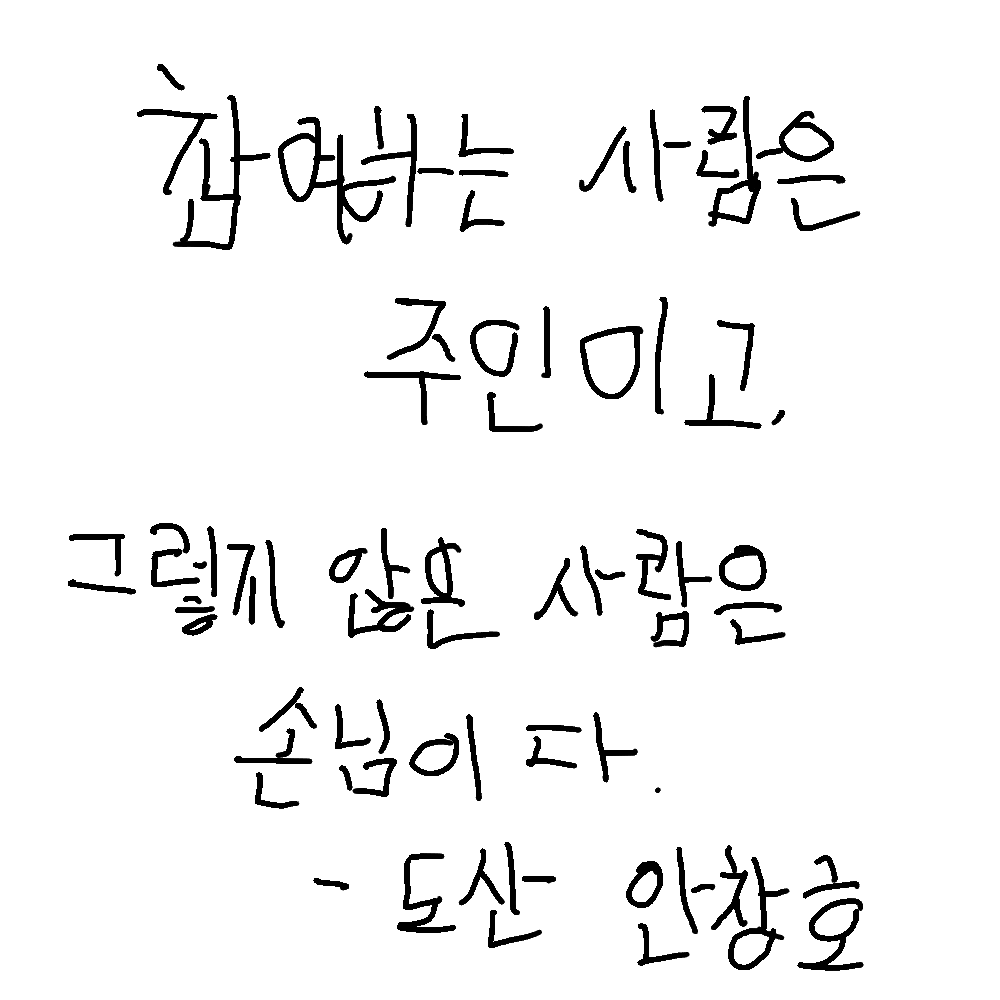 참여하는 사람은
주인이고,
그렇지 않은 사람은
손님이다.
- 도산 안창호